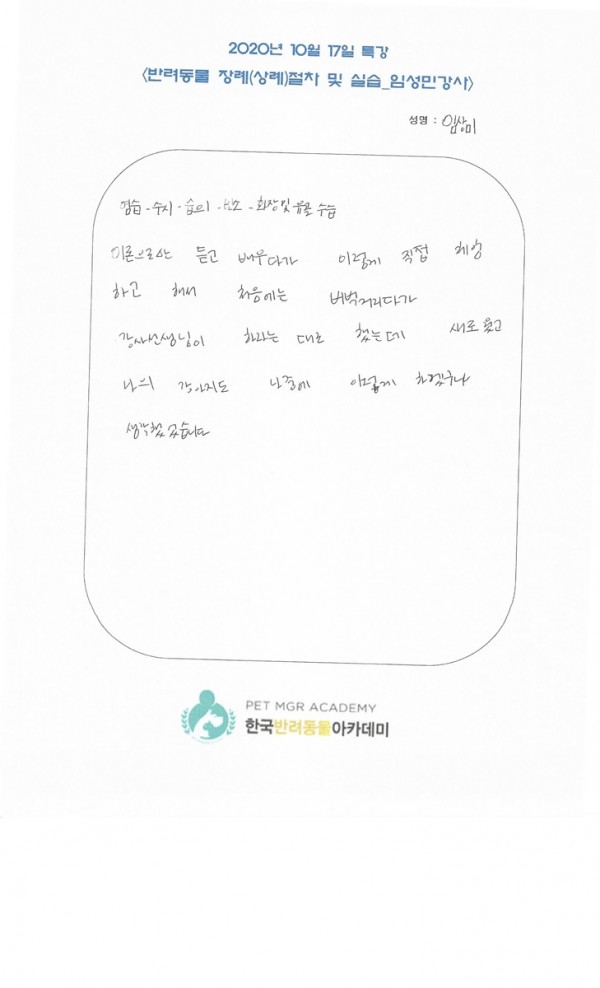 2020년 10월 17일 특강
<반려동물 장례(상례)절차 및 실습_임성민강사>
성명 : 임상미
염습 - 수시 - 습의 - 보소 - 화장및유골 수습
이론으로만 듣고 배우다가 이렇게 직접 체험
하고 해서 처음에는 버벅거리다가
강사선생님이 하라는 대로 했는데 새로웠고
나의 강아지도 나중에 이렇게 하겠구나
생각했었습니다
PET MGR ACADEMY
한국반려동물아카데미